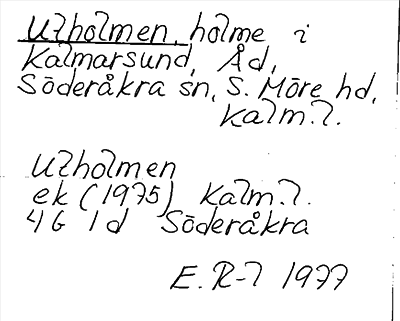 Utholmen, holme i
Kalmarsund, Åd,
Söderåkra sn, S. Möre hd,
Kalm.l.
Utholmen
ek (1975) Kalm.l.
4G 1d Söderåkra
E.R-l 1977